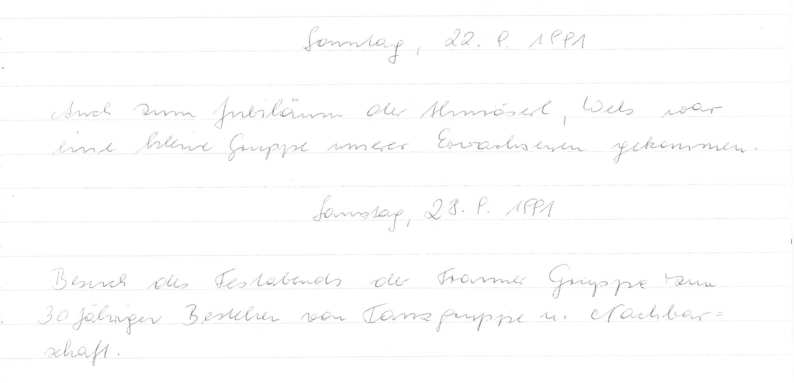 Sonntag, 22. 9. 1991
Auch zum Jubiläum der Almröserl, Wels war
eine kleine Gruppe unserer Erwachsenen gekommen.
Samstag, 28. 9. 1991
Besuch des Festabends der Trauner Gruppe zum
30jährigen Bestehen von Tanzgruppe u. Nachbar=
schaft.